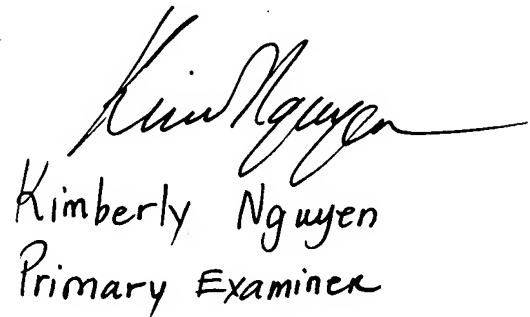 Kim Nguyen
Kimberly Nguyen
Primary Examiner